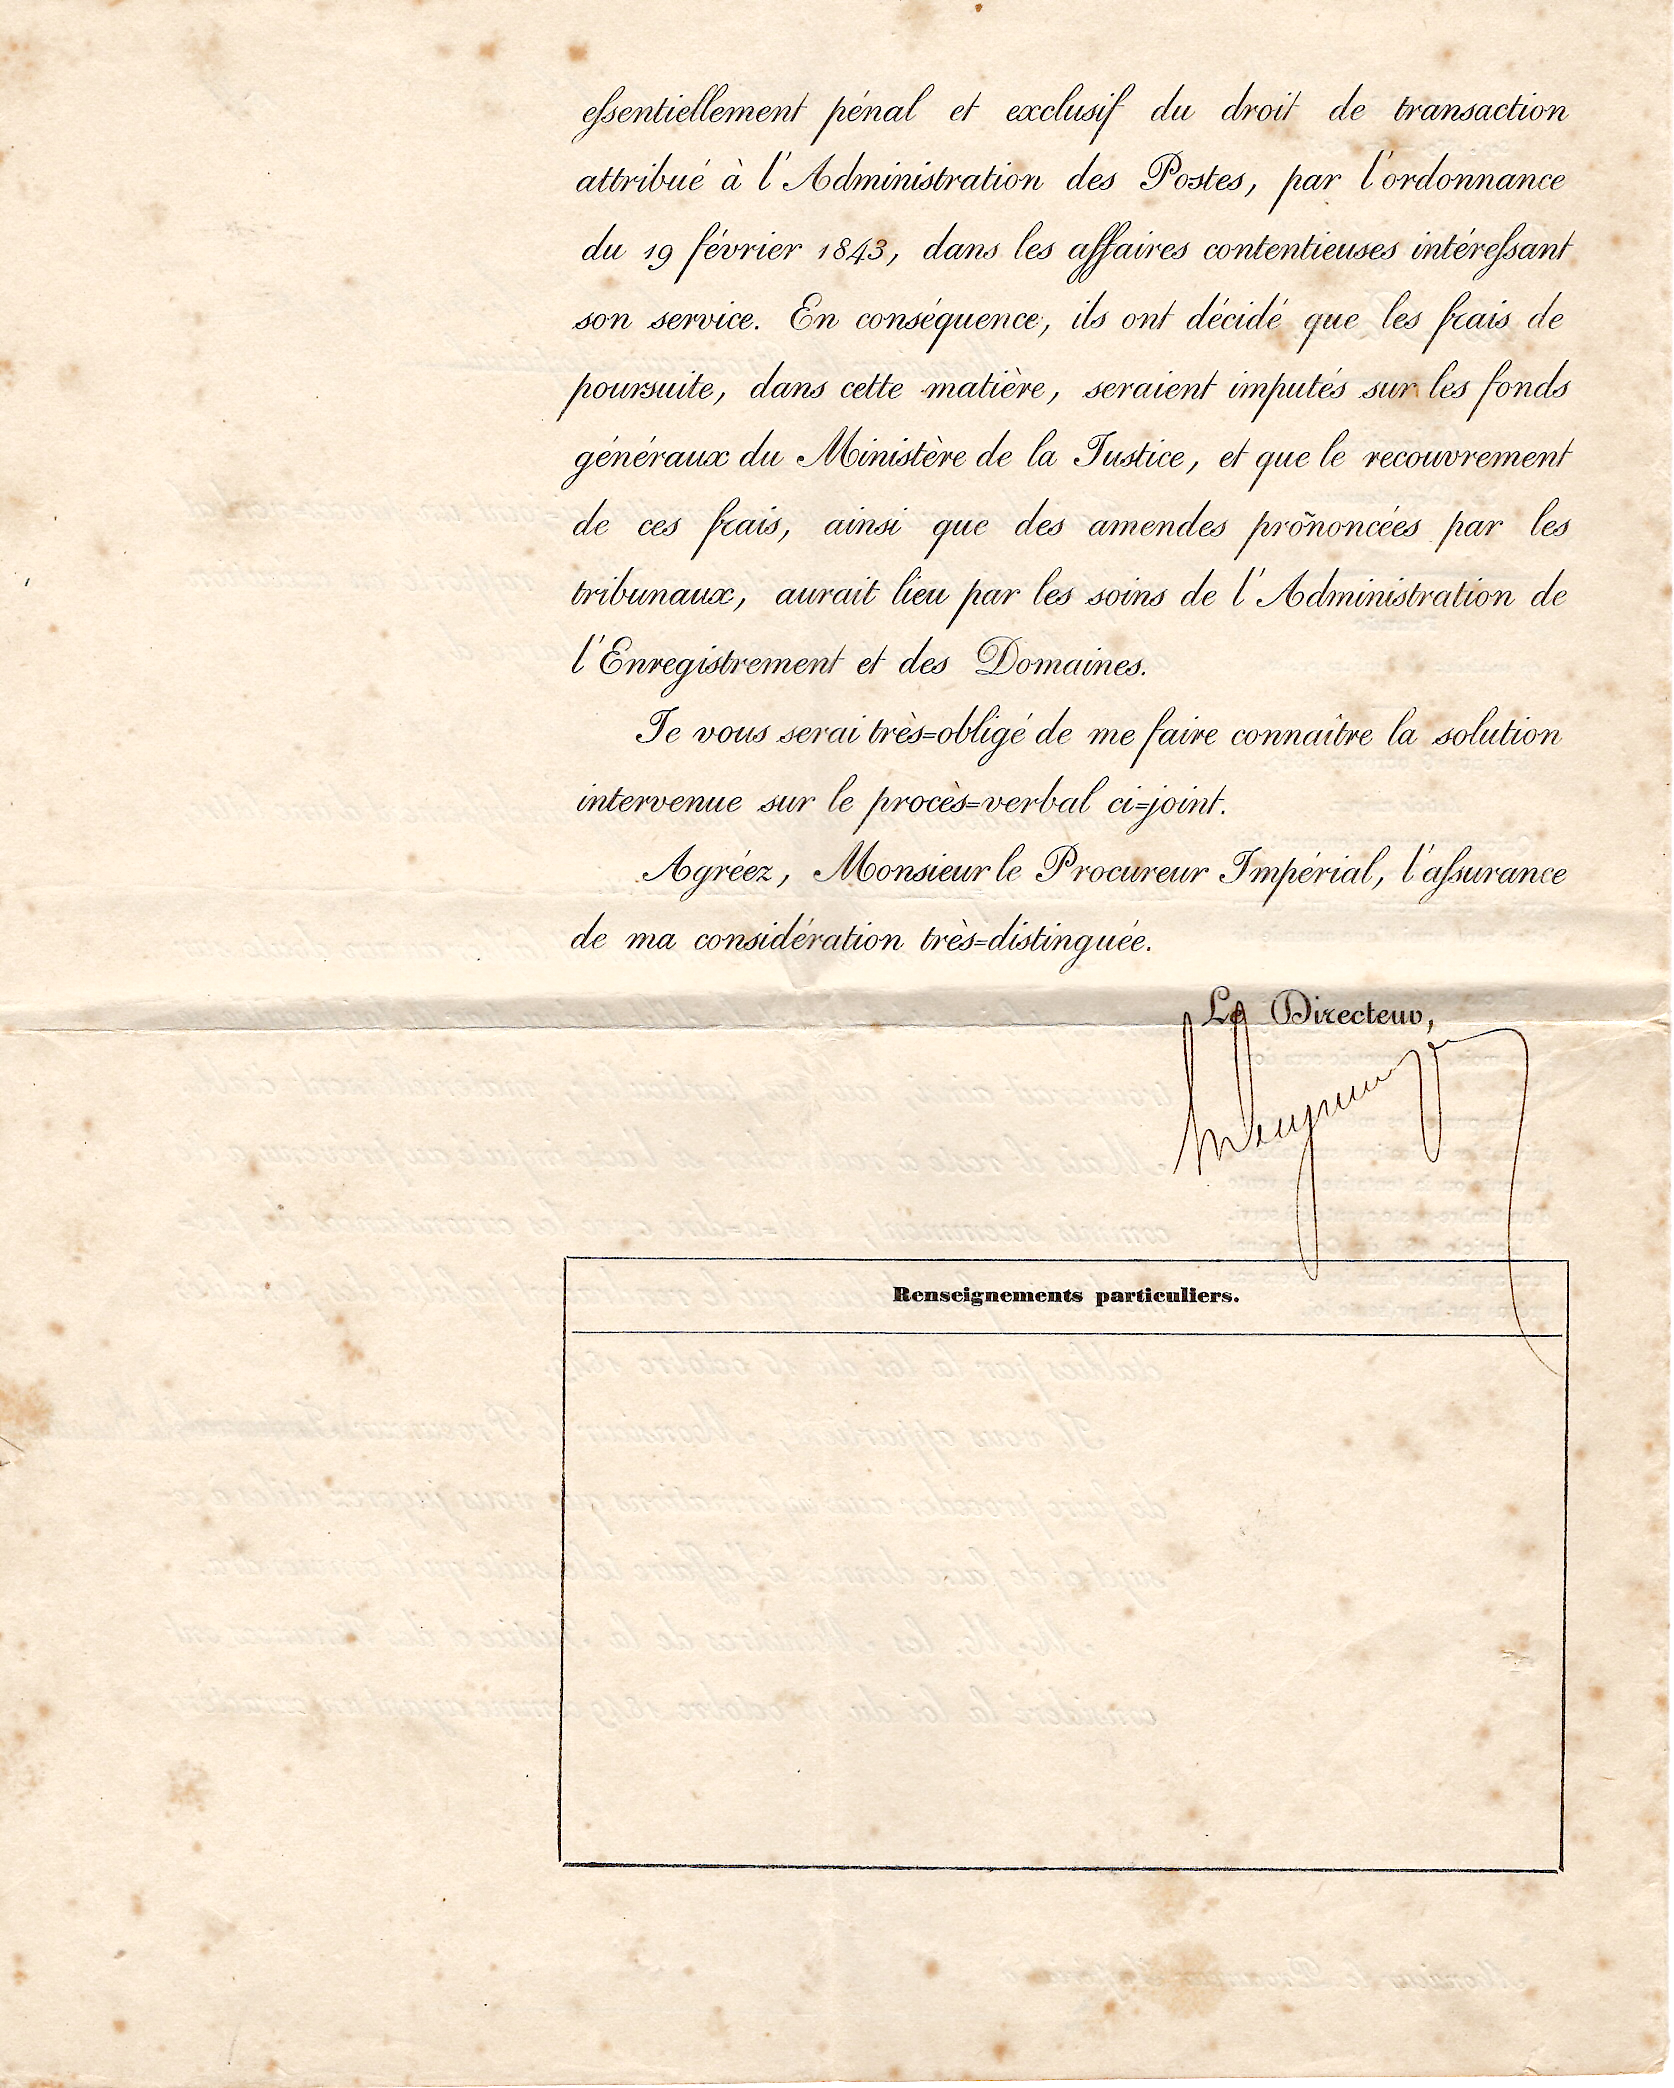 essentiellement pénal et exclusif du droit de transaction
attribué à l'Administration des Postes, par l'ordonnance
du 19 février 1843, dans les affaires contentieuses intéressant
son service. En conséquence, ils ont décidé que les frais de
poursuite, dans cette matière, seraient imputés sur les fonds
généraux du Ministère de la Justice, et que le recouvrement
de ces frais, ainsi que des amendes prononcées par les
tribunaux, aurait lieu par les soins de l'Administration de
l'Enregistrement et des Domaines.
Je vous serai très=obligé de me faire connaître la solution
intervenue sur le procès=verbal ci=joint.
Agréez, Monsieur le Procureur Impérial, l'assurance
de ma considération très=distinguée.
Le Directeur,
Renseignements particuliers.